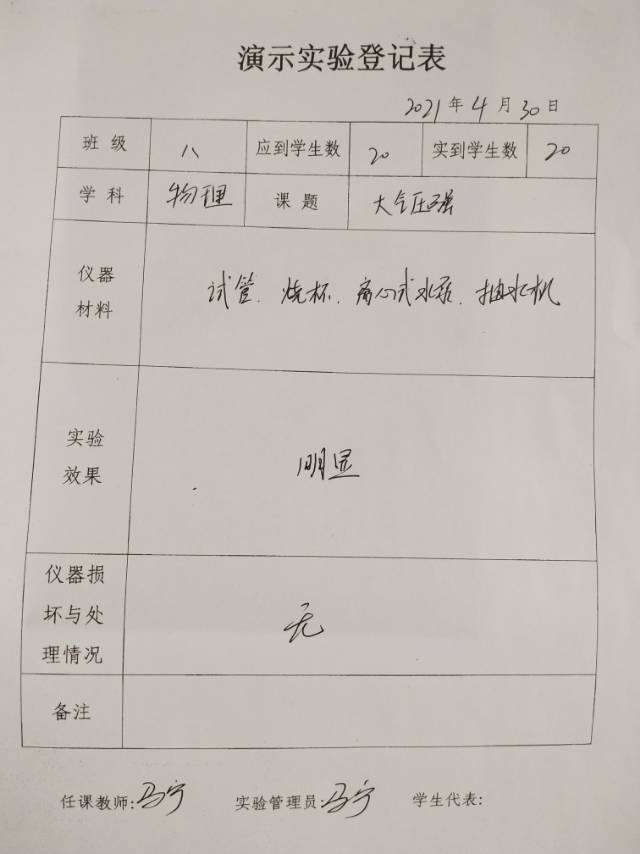 演示实验登记表
2021年4月30日
班级 八 应到学生数 20 实到学生数 20
学科 物理 课题 大气压强
仪器材料 试管、烧杯、离心式水泵、抽水机
实验效果 明显
仪器损坏与处理情况 无
备注
任课教师:马宁 实验管理员:马宁 学生代表: